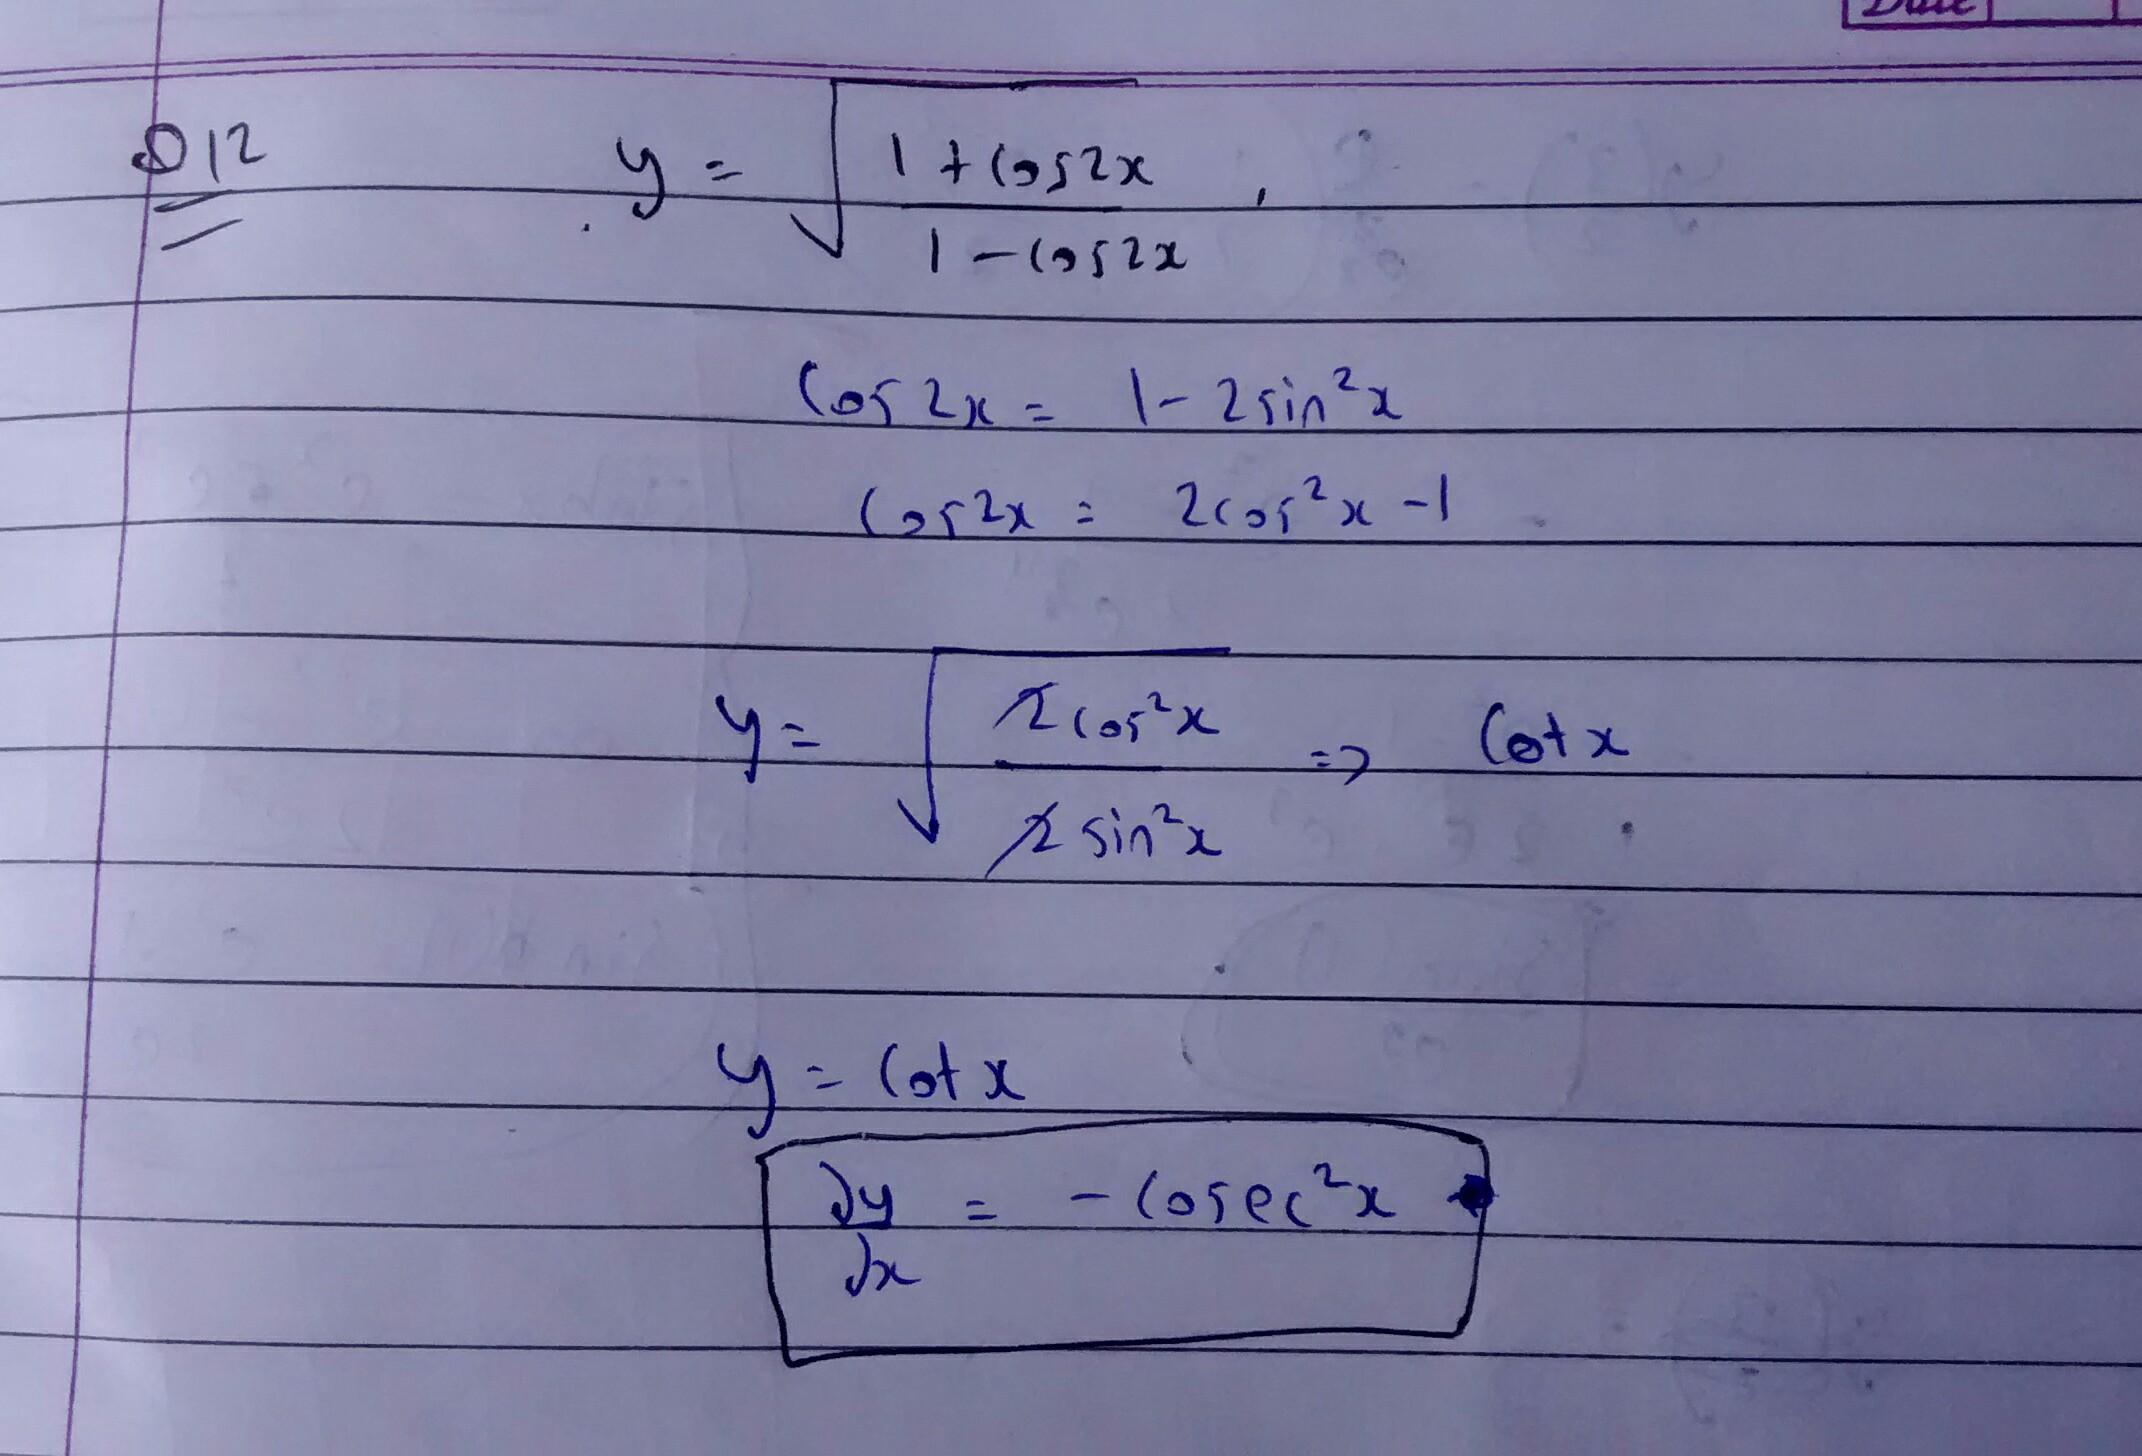 Date
Q12 y = √(1 + cos2x / 1 - cos2x) ,
Cos 2x = 1 - 2 sin²x
Cos 2x = 2cos²x - 1
y = √(2cos²x / 2 sin²x) => Cot x
y = Cot x
dy/dx = - Cosec²x